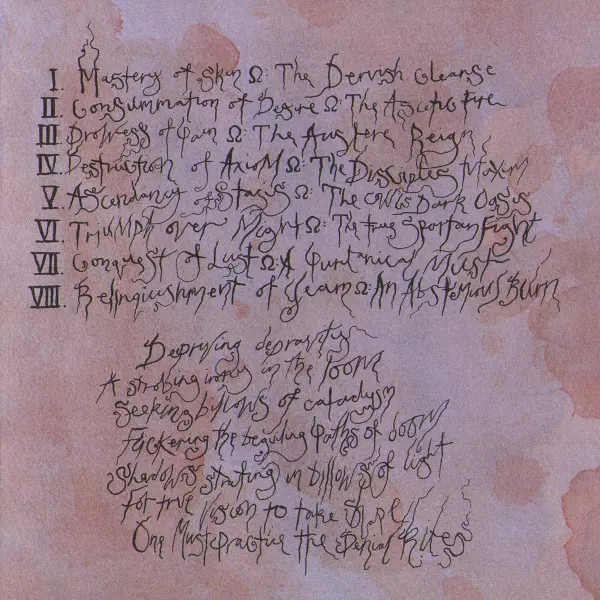 I. Mastery of Skin Ω: The Dervish Cleanse
II. Consummation of Desire Ω: The Ascetic Fire
III. Prowess of Pain Ω: The Austere Reign
IV. Destruction of Axiom Ω: The Disciples Maxim
V. Ascendancy of Stasis Ω: The Cowls Dark Oasis
VI. Triumph over Might Ω: The true Spartan Fight
VII. Conquest of Lust Ω: A Puritanical Must
VIII. Relinqiushment of Yearn Ω: An Abstemious Burn
Depriving depravity
A strobing in the loom
Seeking billows of cataclysm
Flickering the beguiling paths of doom
Shadows in billows of light
For true vision to take
One Must practice the Denial Rites